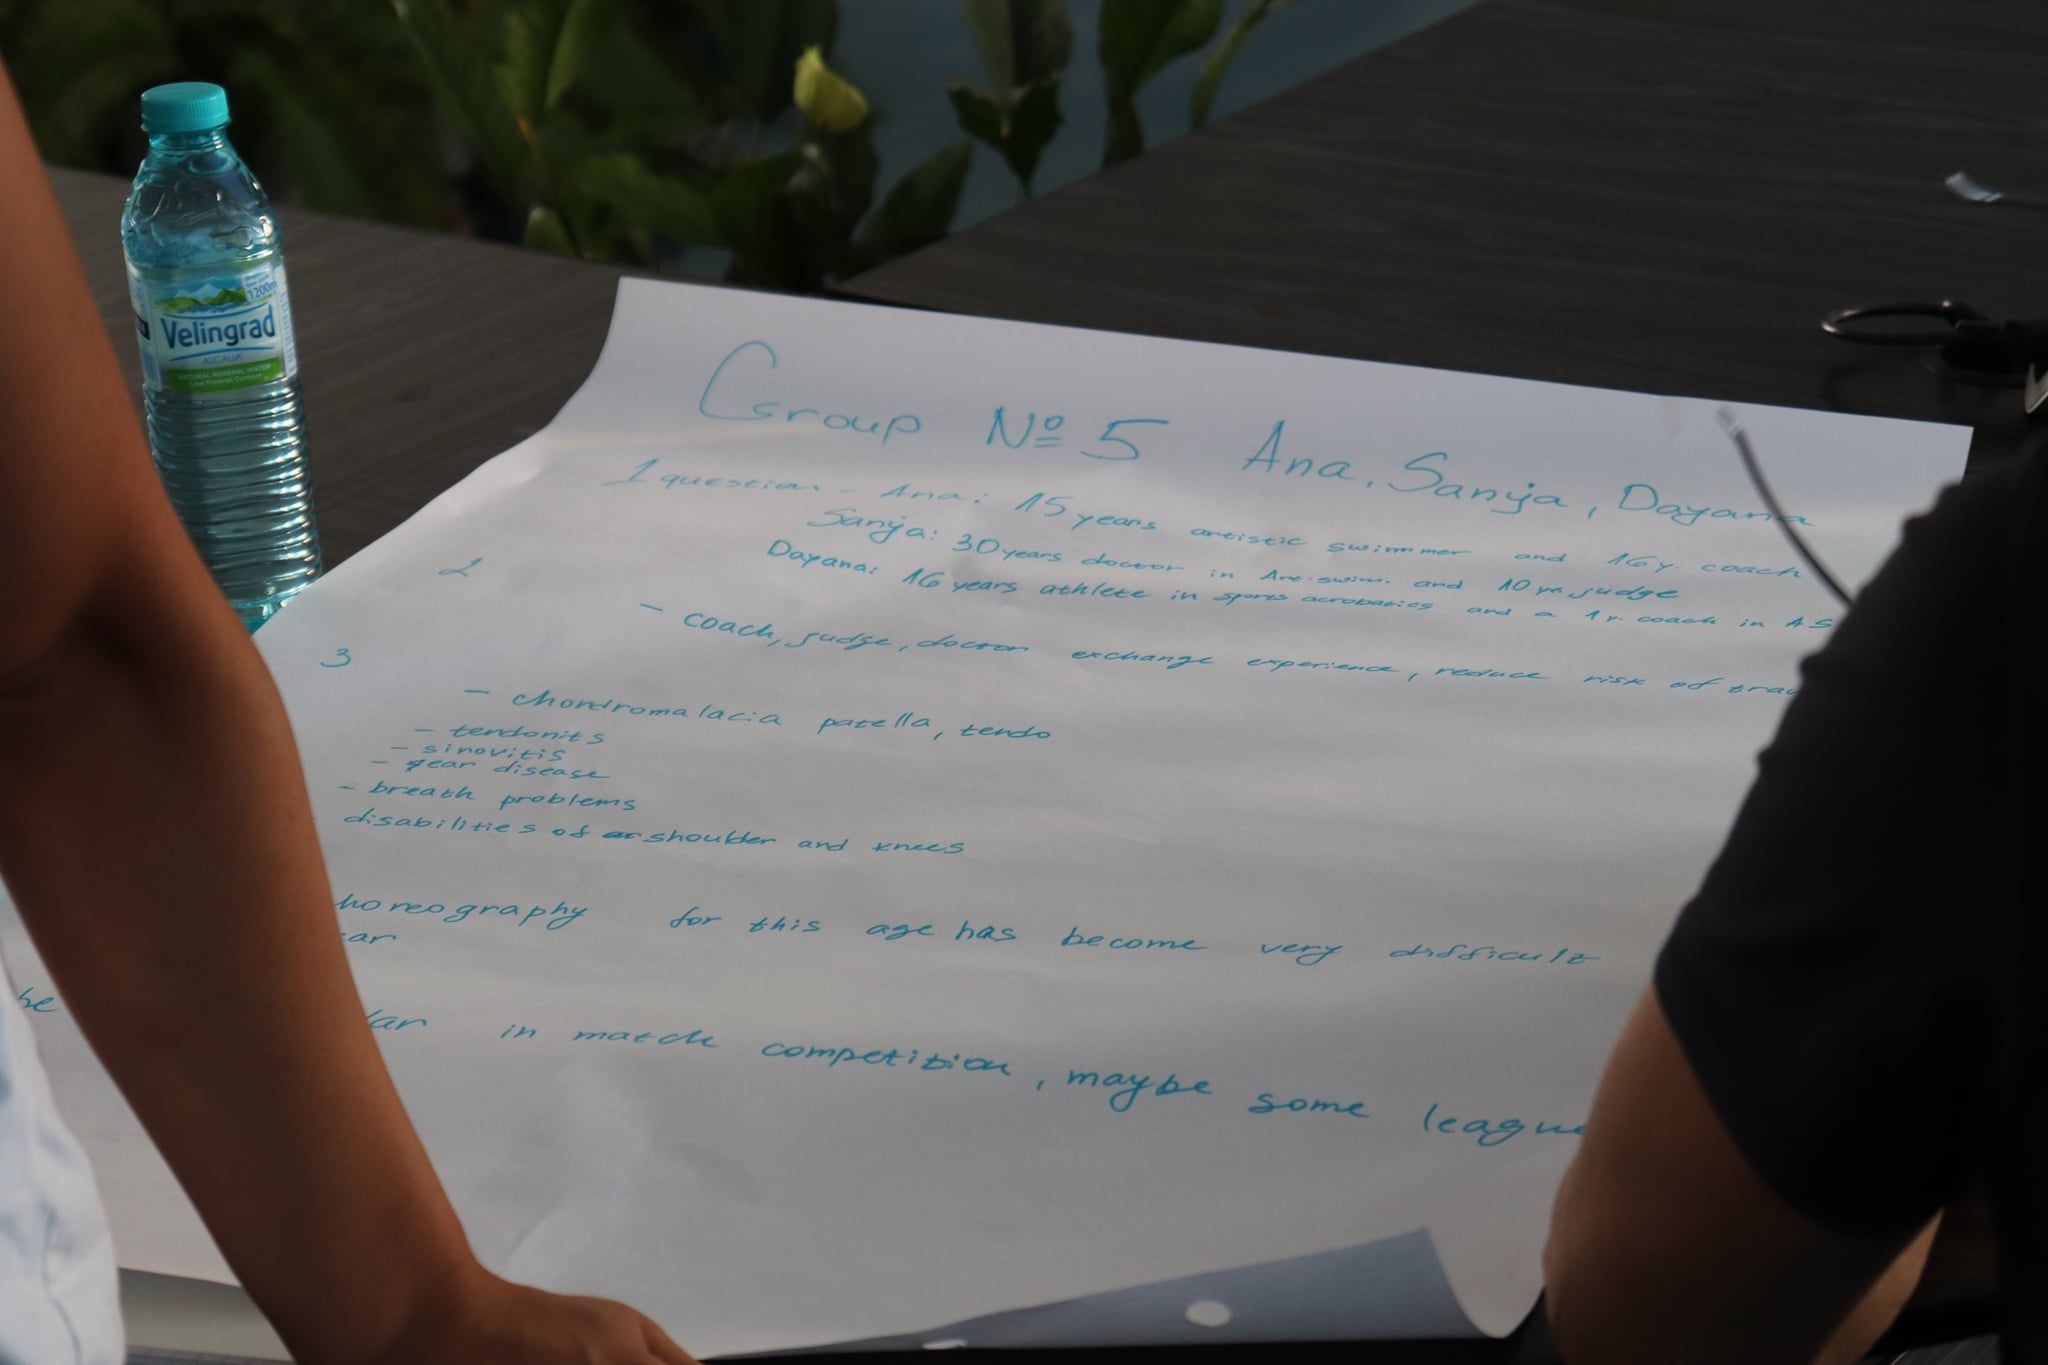 1200m
Velingrad
ALCALIA
NATURAL MINERAL WATER
Low Mineral Content
Group № 5 Ana, Sanja, Dayana
1 question - Ana: 15 years artistic swimmer and 16 y. coach
Sanja: 30 years doctor in Art. swim. and 10 yr. judge
Dayana: 16 years athlete in sports acrobatics and a 1 y. coach in AS
2
- coach, judge, doctor exchange experience, reduce risk of trau
3
- chondromalacia patella, tendo
- tendonits
- sinovitis
- year disease
- breath problems
disabilities of shoulder and knees
horeography for this age has become very difficult
ear
be lar in match competition, maybe some league